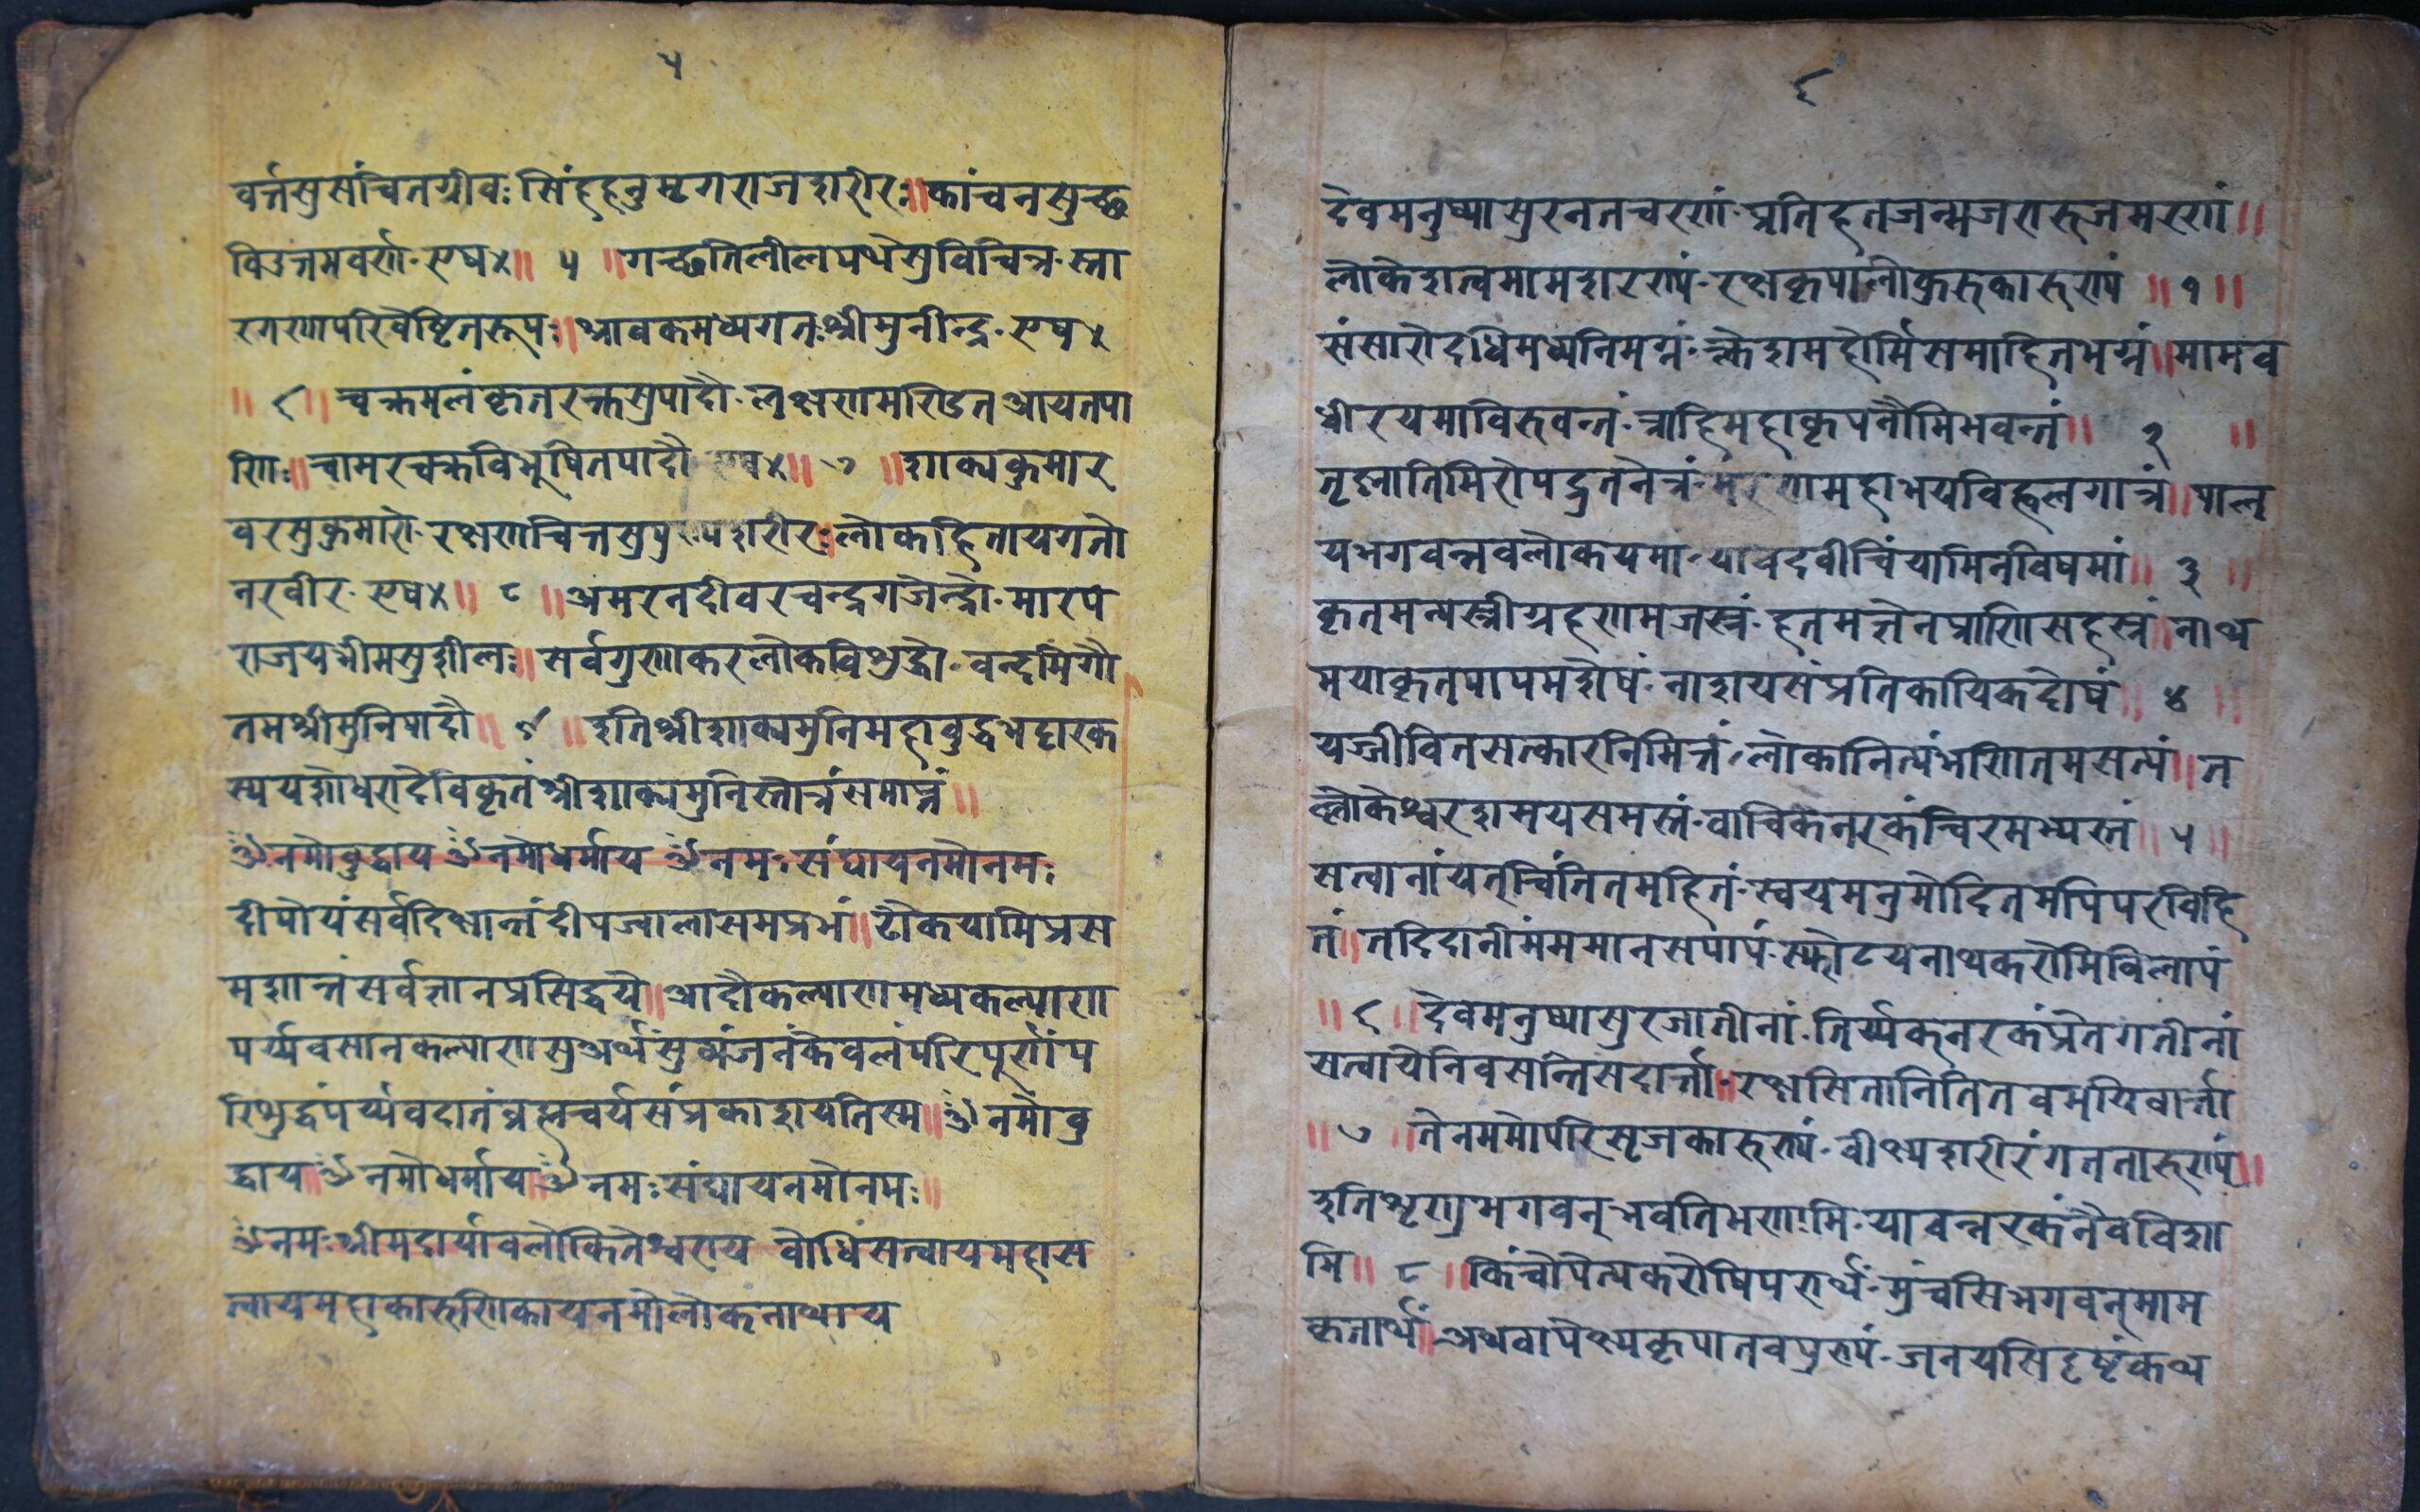 ५
वर्त्तसुसंचितग्रीवः सिंहहनुमृगराजशरीरः॥ कांचनसुच्छ
विउत्तमवर्ण्ण॰ एष४॥ ५ ॥ गच्छतिलीलपथेसुविचित्र॰ स्ता
रगणपरिवेष्टितरूपः॥ श्रावकमध्यगतःश्रीमुनीन्द्र॰ एष४
॥ ६॥ चक्रमलंकृतरक्तसुपादौ॰ लक्षणमण्डित आयतपा
णिः॥ चामरचक्रविभूषितपादौ एष४॥ ७ ॥ शाक्यकुमार
वरसुकुमारो॰ रक्षणचित्तसुपु शरीरः॥ लोकहितायगतो
नरवीर॰ एष४॥ ८ ॥ अमरनदीवरचन्द्रगजेन्द्रो॰ मारपे
राजयभीमसुशील॥ सर्वगुणाकरलोकविशुद्धो॰ वन्दमिगौ
तमश्रीमुनिपादौ॥ ९ ॥ इतिश्रीशाक्यमुनिमहाबुद्धभट्टारक
स्ययशोधरादेविकृतंश्रीशाक्यमुनिस्तोत्रंसमाप्तं॥
ॐनमोबुद्धाय ॐनमोधर्माय ॐनमः संघायनमोनमः
दीपोयंसर्वदिक्षान्तंदीपज्वालासमप्रभं॥ ढौकयामिप्रस
मशान्तंसर्वज्ञानप्रसिद्धये॥ आदौकल्याणमध्यकल्याण
पर्य्यवसानकल्याणसुअर्थंसुव्यंजनंकेवलंपरिपूर्ण्णंप
रिशुद्धंपर्य्यवदातंब्रह्मचर्यसंप्रकाशयतिस्म॥ ॐनमोबु
द्धाय॥ ॐनमोधर्माय॥ ॐनमः संघायनमोनमः॥
ॐनमः श्रीमदार्यावलोकितेश्वराय बोधिसत्वायमहास
त्वायमहाकारुणिकायनमोलोकनाथाय
६
देवमनुष्यासुरनतचरणं॰ प्रतिहतजन्मजरारुजमरणं॥
लोकेशत्वमामशरण्यं॰ रक्षकृपालोकुरुकारुण्यं ॥ १ ॥
संसारोदधिमध्यनिमग्नं॰ क्लेशमहोर्मिसमाहितभग्नं॥ मामव
धीरयमाविरुवन्तं॰ त्राहिमहाकृपनौमिभवन्तं॥ २ ॥
तृष्णातिमिरोपद्रुतनेत्रं॰ मरणमहाभयविह्वलगात्रं॥ पाल
यभगवन्नवलोकयमा॰ यावदवीचिंयामिनविषमां॥ ३ ॥
कृतमन्यस्त्रीग्रहणमजस्त्रं॰ हतमत्तेनप्राणिसहस्त्रं॥ नाथ
मयाकृतपापमशेषं॰ नाशयसंप्रतिकायिकदोषं॥ ४ ॥
यज्जीवितसत्कारनिमित्तं॰ लोकानित्यंभणितमसत्यं॥ त
ल्लोकेश्वरशमयसमस्तं॰ वाचिकनरकंचिरमभ्यस्तं॥ ५ ॥
सत्वानांयत्चिंतितमहितं॰ स्वयमनुमोदितमपिपरविहि
तं॥ तदिदानीमंममानसपापं॰ स्फोटयनाथकरोमिविलापं
॥ ६ ॥ देवमनुष्यासुरजातीनां॰ तिर्य्यक्नरकंप्रेतगतीनां
सत्वायेनिवसन्तिसदार्त्ता॰॥ रक्षसितानितितवमयिवार्त्ता
॥ ७ ॥ तेनममोपरिसृजकारुण्यं॰ वीक्ष्यशरीरंगततारुण्यं॥
इतिशृणुभगवन्भवतिभणामि॰ यावन्नरकंनैवविशा
मि॥ ८ ॥ किंचोपेत्यकरोषिपरार्थं॰ मुंचसिभगवन्माम
कृतार्थं॥ अथवापेक्ष्यकृपातवपुण्यं॰ जनयसिदृष्टंकथ